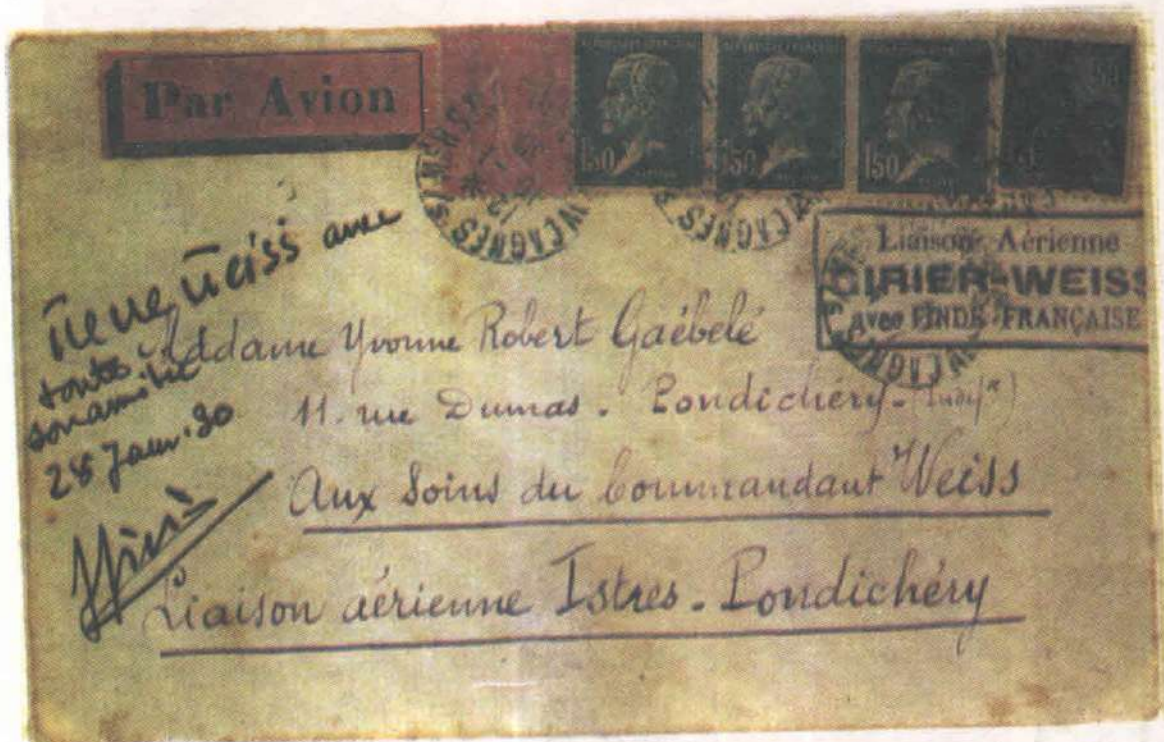 Par Avion
RÉPUBLIQUE FRANÇAISE
1F50
1F50
1F50
Liaison Aérienne
GIRIER-WEISS
avec l'INDE FRANÇAISE
Weiss avec
toute
son amitié
28 Janv. 30
Maddame Yvonne Robert Gaébelé
11. rue Dumas. Pondichéry. (Indes)
Aux Soins du Commandant Weiss
Liaison aérienne Istres. Pondichéry